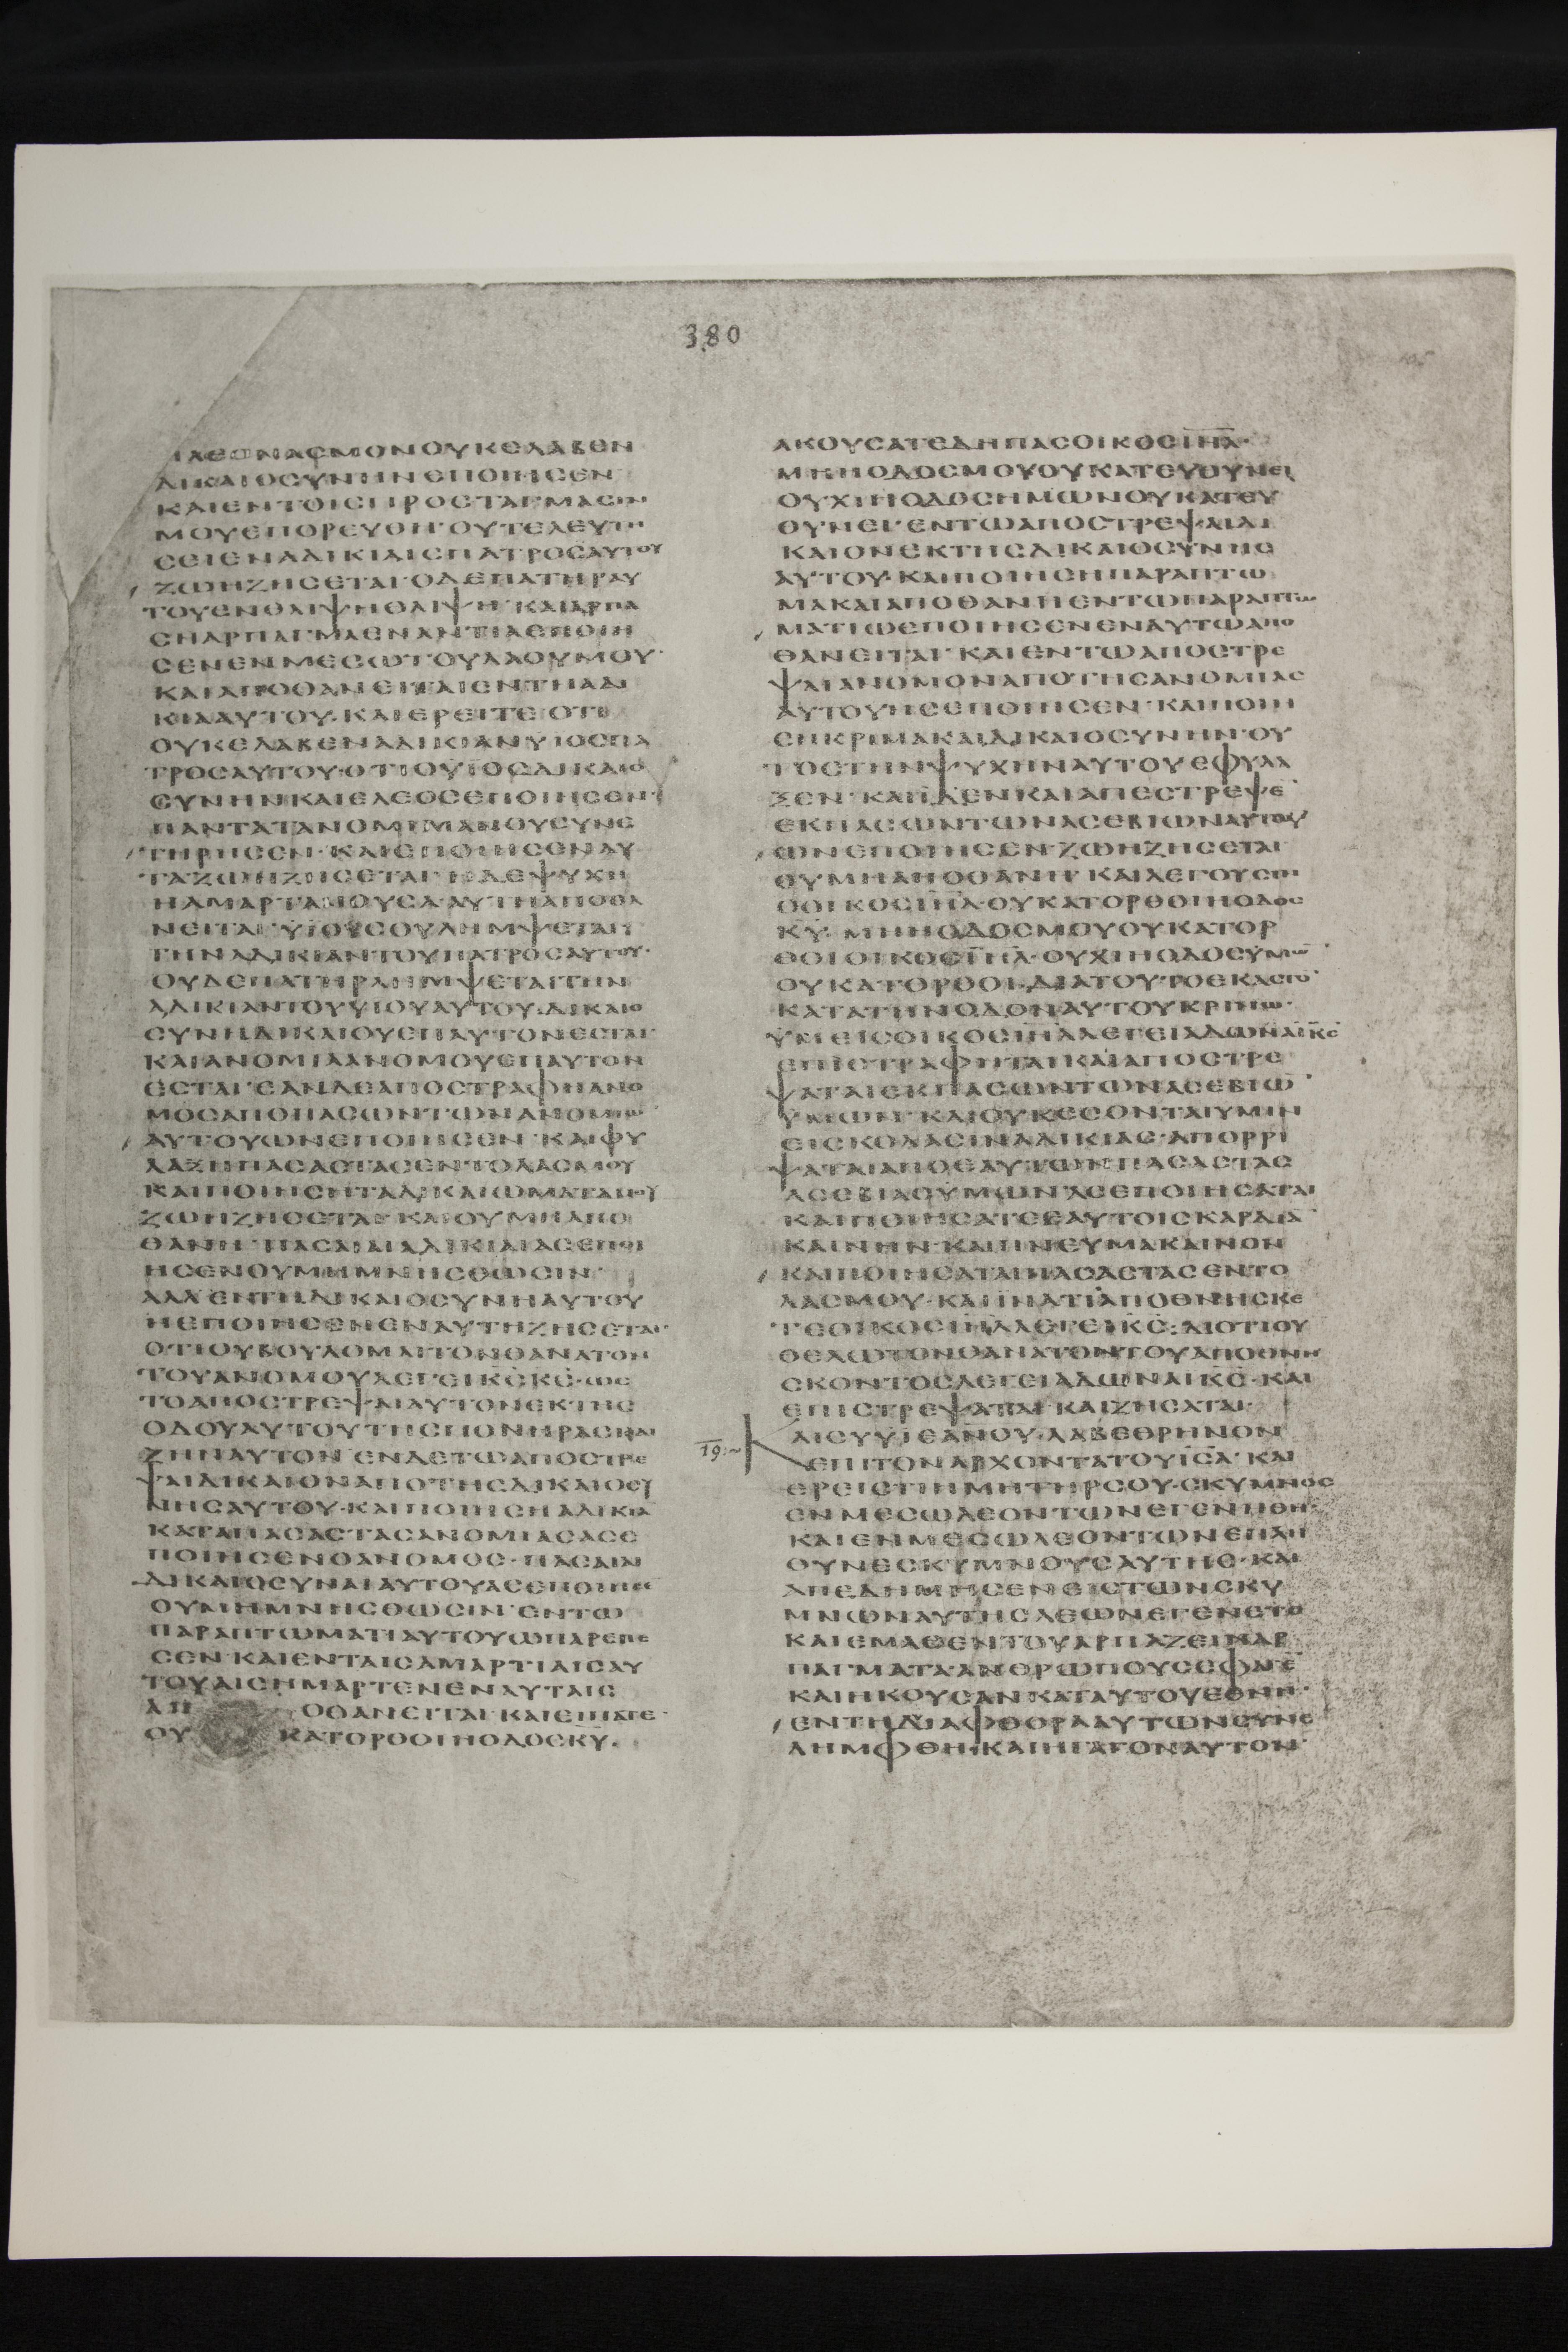 380
ΠΛΕΟΝΑΣΜΟΝΟΥΚΕΛΑΒΕΝ
ΔΙΚΑΙΟΣΥΝΗΝΕΠΟΙΗΣΕΝ
ΚΑΙΕΝΤΟΙΣΠΡΟΣΤΑΓΜΑΣΙΝ·
ΜΟΥΕΠΟΡΕΥΘΗ·ΟΥΤΕΛΕΥΤΗ
ΣΕΙΕΝΑΔΙΚΙΑΙΣΠΑΤΡΟΣΑΥΤΟΥ
ΖΩΗΖΗΣΕΤΑΙ·ΟΔΕΠΑΤΗΡΑΥ
ΤΟΥΕΝΘΛΙΨΗΘΛΙΨΗ·ΚΑΙΑΡΠΑ
ΣΗΑΡΠΑΓΜΑΕΝΑΝΤΙΑΕΠΟΙΗ
ΣΕΝΕΝΜΕΣΩΤΟΥΛΑΟΥΜΟΥ·
ΚΑΙΑΠΟΘΑΝΕΙΤΑΙΕΝΤΗΑΔΙ
ΚΙΑΑΥΤΟΥ·ΚΑΙΕΡΕΙΤΕΟΤΙ
ΟΥΚΕΛΑΒΕΝΑΔΙΚΙΑΝΥΙΟΣΠΑ
ΤΡΟΣΑΥΤΟΥ·ΟΤΙΟΥΙΟΣΔΙΚΑΙΟ
ΣΥΝΗΝΚΑΙΕΛΕΟΣΕΠΟΙΗΣΕΝ·
ΠΑΝΤΑΤΑΝΟΜΙΜΑΜΟΥΣΥΝΕ
ΤΗΡΗΣΕΝ·ΚΑΙΕΠΟΙΗΣΕΝΑΥ
ΤΑΖΩΗΖΗΣΕΤΑΙ·ΗΔΕΨΥΧΗ
ΗΑΜΑΡΤΑΝΟΥΣΑ·ΑΥΤΗΑΠΟΘΑ
ΝΕΙΤΑΙ·ΥΙΟΥΣΟΥΛΗΜΨΕΤΑΙ
ΤΗΝΑΔΙΚΙΑΝΤΟΥΠΑΤΡΟΣΑΥΤΟΥ·
ΟΥΔΕΠΑΤΗΡΛΗΜΨΕΤΑΙΤΗΝ
ΑΔΙΚΙΑΝΤΟΥΥΙΟΥΑΥΤΟΥ·ΔΙΚΑΙΟ
ΣΥΝΗΔΙΚΑΙΟΥΕΠΑΥΤΟΝΕΣΤΑΙ·
ΚΑΙΑΝΟΜΙΑΑΝΟΜΟΥΕΠΑΥΤΟΝ
ΕΣΤΑΙ·ΕΑΝΔΕΑΠΟΣΤΡΑΦΗΑΝΟ
ΜΟΣΑΠΟΠΑΣΩΝΤΩΝΑΝΟΜΙΩ
ΑΥΤΟΥΩΝΕΠΟΙΗΣΕΝ·ΚΑΙΦΥ
ΛΑΞΗΠΑΣΑΣΤΑΣΕΝΤΟΛΑΣΜΟΥ
ΚΑΙΠΟΙΗΣΗΤΑΔΙΚΑΙΩΜΑΤΑΜΟΥ
ΖΩΗΖΗΣΕΤΑΙ·ΚΑΙΟΥΜΗΑΠΟ
ΘΑΝΗ·ΠΑΣΑΙΑΙΑΔΙΚΙΑΙΑΣΕΠΟΙ
ΗΣΕΝΟΥΜΗΜΝΗΣΘΩΣΙΝ·
ΑΛΛΕΝΤΗΔΙΚΑΙΟΣΥΝΗΑΥΤΟΥ
ΗΕΠΟΙΗΣΕΝΕΝΑΥΤΗΖΗΣΕΤΑΙ·
ΟΤΙΟΥΒΟΥΛΟΜΑΙΤΟΝΘΑΝΑΤΟΝ
ΤΟΥΑΝΟΜΟΥΛΕΓΕΙΚΣΚΣ·ΩΣ
ΤΟΑΠΟΣΤΡΕΨΑΙΑΥΤΟΝΕΚΤΗΣ
ΟΔΟΥΑΥΤΟΥΤΗΣΠΟΝΗΡΑΣΚΑΙ
ΖΗΝΑΥΤΟΝ·ΕΝΔΕΤΩΑΠΟΣΤΡΕ
ΨΑΙΔΙΚΑΙΟΝΑΠΟΤΗΣΔΙΚΑΙΟΣΥ
ΝΗΣΑΥΤΟΥ·ΚΑΙΠΟΙΗΣΗΑΔΙΚΙΑ
ΚΑΤΑΠΑΣΑΣΤΑΣΑΝΟΜΙΑΣΑΣΕ
ΠΟΙΗΣΕΝΟΑΝΟΜΟΣ·ΠΑΣΑΙΑΙ
ΔΙΚΑΙΟΣΥΝΑΙΑΥΤΟΥΑΣΕΠΟΙΗΣΕ
ΟΥΜΗΜΝΗΣΘΩΣΙΝ·ΕΝΤΩ
ΠΑΡΑΠΤΩΜΑΤΙΑΥΤΟΥΩΠΑΡΕΠΕ
ΣΕΝ·ΚΑΙΕΝΤΑΙΣΑΜΑΡΤΙΑΙΣΑΥ
ΤΟΥΑΙΣΗΜΑΡΤΕΝΕΝΑΥΤΑΙΣ
ΑΠ ΟΘΑΝΕΙΤΑΙ·ΚΑΙΕΙΠΑΤΕ·
ΟΥ ΚΑΤΟΡΘΟΙΗΟΔΟΣΚΥ·
ΑΚΟΥΣΑΤΕΔΗΠΑΣΟΙΚΟΣΙΗΛ·
ΜΗΗΟΔΟΣΜΟΥΟΥΚΑΤΕΥΘΥΝΕΙ
ΟΥΧΙΗΟΔΟΣΗΜΩΝΟΥΚΑΤΕΥ
ΘΥΝΕΙ·ΕΝΤΩΑΠΟΣΤΡΕΨΑΙΔΙ
ΚΑΙΟΝΕΚΤΗΣΔΙΚΑΙΟΣΥΝΗΣ
ΑΥΤΟΥ·ΚΑΙΠΟΙΗΣΗΠΑΡΑΠΤΩ
ΜΑΚΑΙΑΠΟΘΑΝΗΕΝΤΩΠΑΡΑΠΤΩ
ΜΑΤΙΩΕΠΟΙΗΣΕΝΕΝΑΥΤΩΑΠΟ
ΘΑΝΕΙΤΑΙ·ΚΑΙΕΝΤΩΑΠΟΣΤΡΕ
ΨΑΙΑΝΟΜΟΝΑΠΟΤΗΣΑΝΟΜΙΑΣ
ΑΥΤΟΥΗΣΕΠΟΙΗΣΕΝ·ΚΑΙΠΟΙΗ
ΣΗΚΡΙΜΑΚΑΙΔΙΚΑΙΟΣΥΝΗΝ·ΟΥ
ΤΟΣΤΗΝΨΥΧΗΝΑΥΤΟΥΕΦΥΛΑ
ΞΕΝ·ΚΑΙΙΔΕΝΚΑΙΑΠΕΣΤΡΕΨΕ
ΕΚΠΑΣΩΝΤΩΝΑΣΕΒΙΩΝΑΥΤΟΥ
ΩΝΕΠΟΙΗΣΕΝ·ΖΩΗΖΗΣΕΤΑΙ
ΟΥΜΗΑΠΟΘΑΝΗ·ΚΑΙΛΕΓΟΥΣΙΝ
ΟΟΙΚΟΣΙΗΛ·ΟΥΚΑΤΟΡΘΟΙΗΟΔΟΣ
ΚΥ·ΜΗΗΟΔΟΣΜΟΥΟΥΚΑΤΟΡ
ΘΟΙΟΙΚΟΣΙΗΛ·ΟΥΧΙΗΟΔΟΣΥΜΩ
ΟΥΚΑΤΟΡΘΟΙ·ΔΙΑΤΟΥΤΟΕΚΑΣΤΟ
ΚΑΤΑΤΗΝΟΔΟΝΑΥΤΟΥΚΡΙΝΩ·
ΥΜΕΙΣΟΙΚΟΣΙΗΛΛΕΓΕΙΑΔΩΝΑΙΚΣ
ΕΠΙΣΤΡΑΦΗΤΑΙΚΑΙΑΠΟΣΤΡΕ
ΨΑΤΑΙΕΚΠΑΣΩΝΤΩΝΑΣΕΒΙΩ
ΥΜΩΝ·ΚΑΙΟΥΚΕΣΟΝΤΑΙΥΜΙΝ
ΕΙΣΚΟΛΑΣΙΝΑΔΙΚΙΑΣ·ΑΠΟΡΡΙ
ΨΑΤΑΙΑΠΟΕΑΥΤΩΝΠΑΣΑΣΤΑΣ
ΑΣΕΒΙΑΣΥΜΩΝΑΣΕΠΟΙΗΣΑΤΑΙ
ΚΑΙΠΟΙΗΣΑΤΕΕΑΥΤΟΙΣΚΑΡΔΙΑ
ΚΑΙΝΗΝ·ΚΑΙΠΝΕΥΜΑΚΑΙΝΟΝ
ΚΑΙΠΟΙΗΣΑΤΑΙΠΑΣΑΣΤΑΣΕΝΤΟ
ΛΑΣΜΟΥ·ΚΑΙΙΝΑΤΙΑΠΟΘΝΗΣΚΕ
ΤΕΟΙΚΟΣΙΗΛΛΕΓΕΙΚΣ:ΔΙΟΤΙΟΥ
ΘΕΛΩΤΟΝΘΑΝΑΤΟΝΤΟΥΑΠΟΘΝΗ
ΣΚΟΝΤΟΣΛΕΓΕΙΑΔΩΝΑΙΚΣ·ΚΑΙ
ΕΠΙΣΤΡΕΨΑΤΑΙ·ΚΑΙΖΗΣΑΤΑΙ·
19:~ ΚΑΙΣΥΥΙΕΑΝΟΥ·ΛΑΒΕΘΡΗΝΟΝ
ΕΠΙΤΟΝΑΡΧΟΝΤΑΤΟΥΙΣΛ·ΚΑΙ
ΕΡΕΙΣΤΙΗΜΗΤΗΡΣΟΥ·ΣΚΥΜΝΟΣ
ΕΝΜΕΣΩΛΕΟΝΤΩΝΕΓΕΝΗΘΗ·
ΚΑΙΕΝΜΕΣΩΛΕΟΝΤΩΝΕΠΛΗ
ΘΥΝΕΣΚΥΜΝΟΥΣΑΥΤΗΣ·ΚΑΙ
ΑΠΕΔΗΜΗΣΕΝΕΙΣΤΩΝΣΚΥ
ΜΝΩΝΑΥΤΗΣΛΕΩΝΕΓΕΝΕΤΟ
ΚΑΙΕΜΑΘΕΝΤΟΥΑΡΠΑΖΕΙΝΑΡ
ΠΑΓΜΑΤΑ·ΑΝΘΡΩΠΟΥΣΕΦΑΓΕ
ΚΑΙΗΚΟΥΣΑΝΚΑΤΑΥΤΟΥΕΘΝΗ·
ΕΝΤΗΔΙΑΦΘΟΡΑΑΥΤΩΝΣΥΝΕ
ΛΗΜΦΘΗ·ΚΑΙΗΓΑΓΟΝΑΥΤΟΝ·